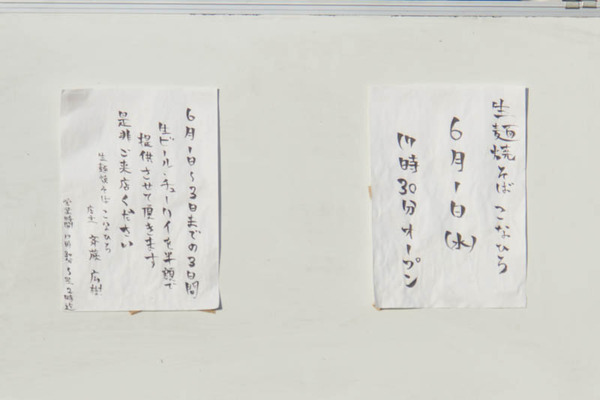 生麺焼そば こなひろ
6月1日(水)
17時30分オープン
6月1日〜3日までの3日間
生ビール・チューハイを半額で
提供させて頂きます
是非ご来店ください
生麺焼そば こなひろ
店主 斉藤 広樹
営業時間